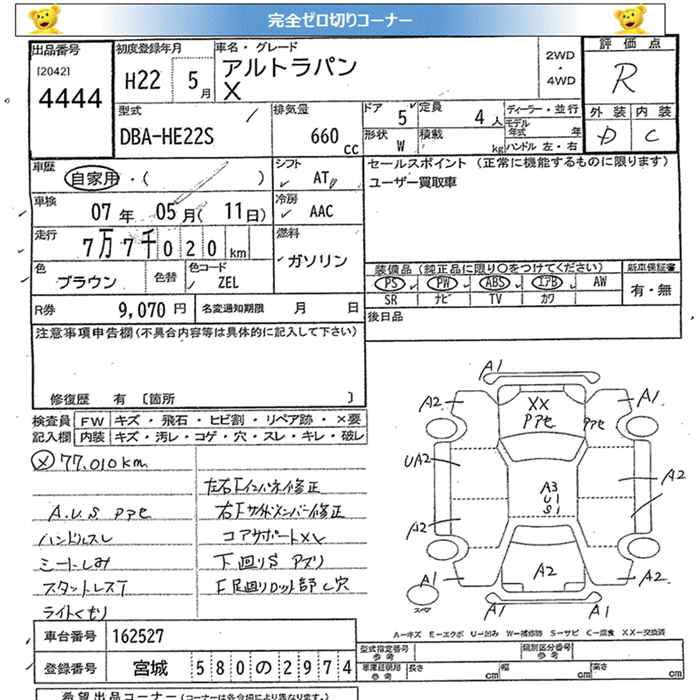 完全ゼロ切りコーナー
出品番号
[2042]
4444
初度登録年月
H22 5月
車名・グレード
アルトラパン
X
2WD
・
4WD
評価点
R
外装 内装
D C
型式
DBA-HE22S
排気量
660 cc
ドア
5
定員
4人
形状
W
積載
kg
ディーラー・並行
モデル年式 年
ハンドル 左・右
車歴
自家用・( )
シフト
AT
セールスポイント (正常に機能するものに限ります)
ユーザー買取車
車検
07年 05月(11日)
冷房
AAC
走行
7万7千020km
燃料
ガソリン
色
ブラウン
色替
色コード
ZEL
装備品 (純正品に限り○をつけてください)
PS PW ABS エアB AW
SR ナビ TV カワ
新車保証書
有・無
R券 9,070円
名変通知期限 月 日
後日品
注意事項申告欄(不具合内容等は具体的に記入して下さい)
修復歴 有 〔箇所 〕
検査員記入欄
FW キズ・飛石・ヒビ割・リペア跡・×要
内装 キズ・汚レ・コゲ・穴・スレ・キレ・破レ
メ 77,010km
左右Fインパネ修正
A.U.S PPセ
右Fサイドメンバー修正
ハンドルスレ
コアサポートXX
シートしみ
下廻りS アブリ
スタットレスT
F足廻りロット部し穴
ライトくもり
A1
A2 XX A1
PPセ PPセ
UA2 A2
A3
U1
S1
A2
A2
A1 A2
スペア
A1 A1
A－キズ E－エクボ U－凹み W－補修跡 S－サビ C－腐食 XX－交換済
車台番号 162527
型式指定番号 参考
類別区分番号 参考
登録番号 宮城 580 の 2974
車庫証明用 参考
長さ cm
幅 cm
高さ cm
希望出品コーナー (コーナーは各会場により異なります。)